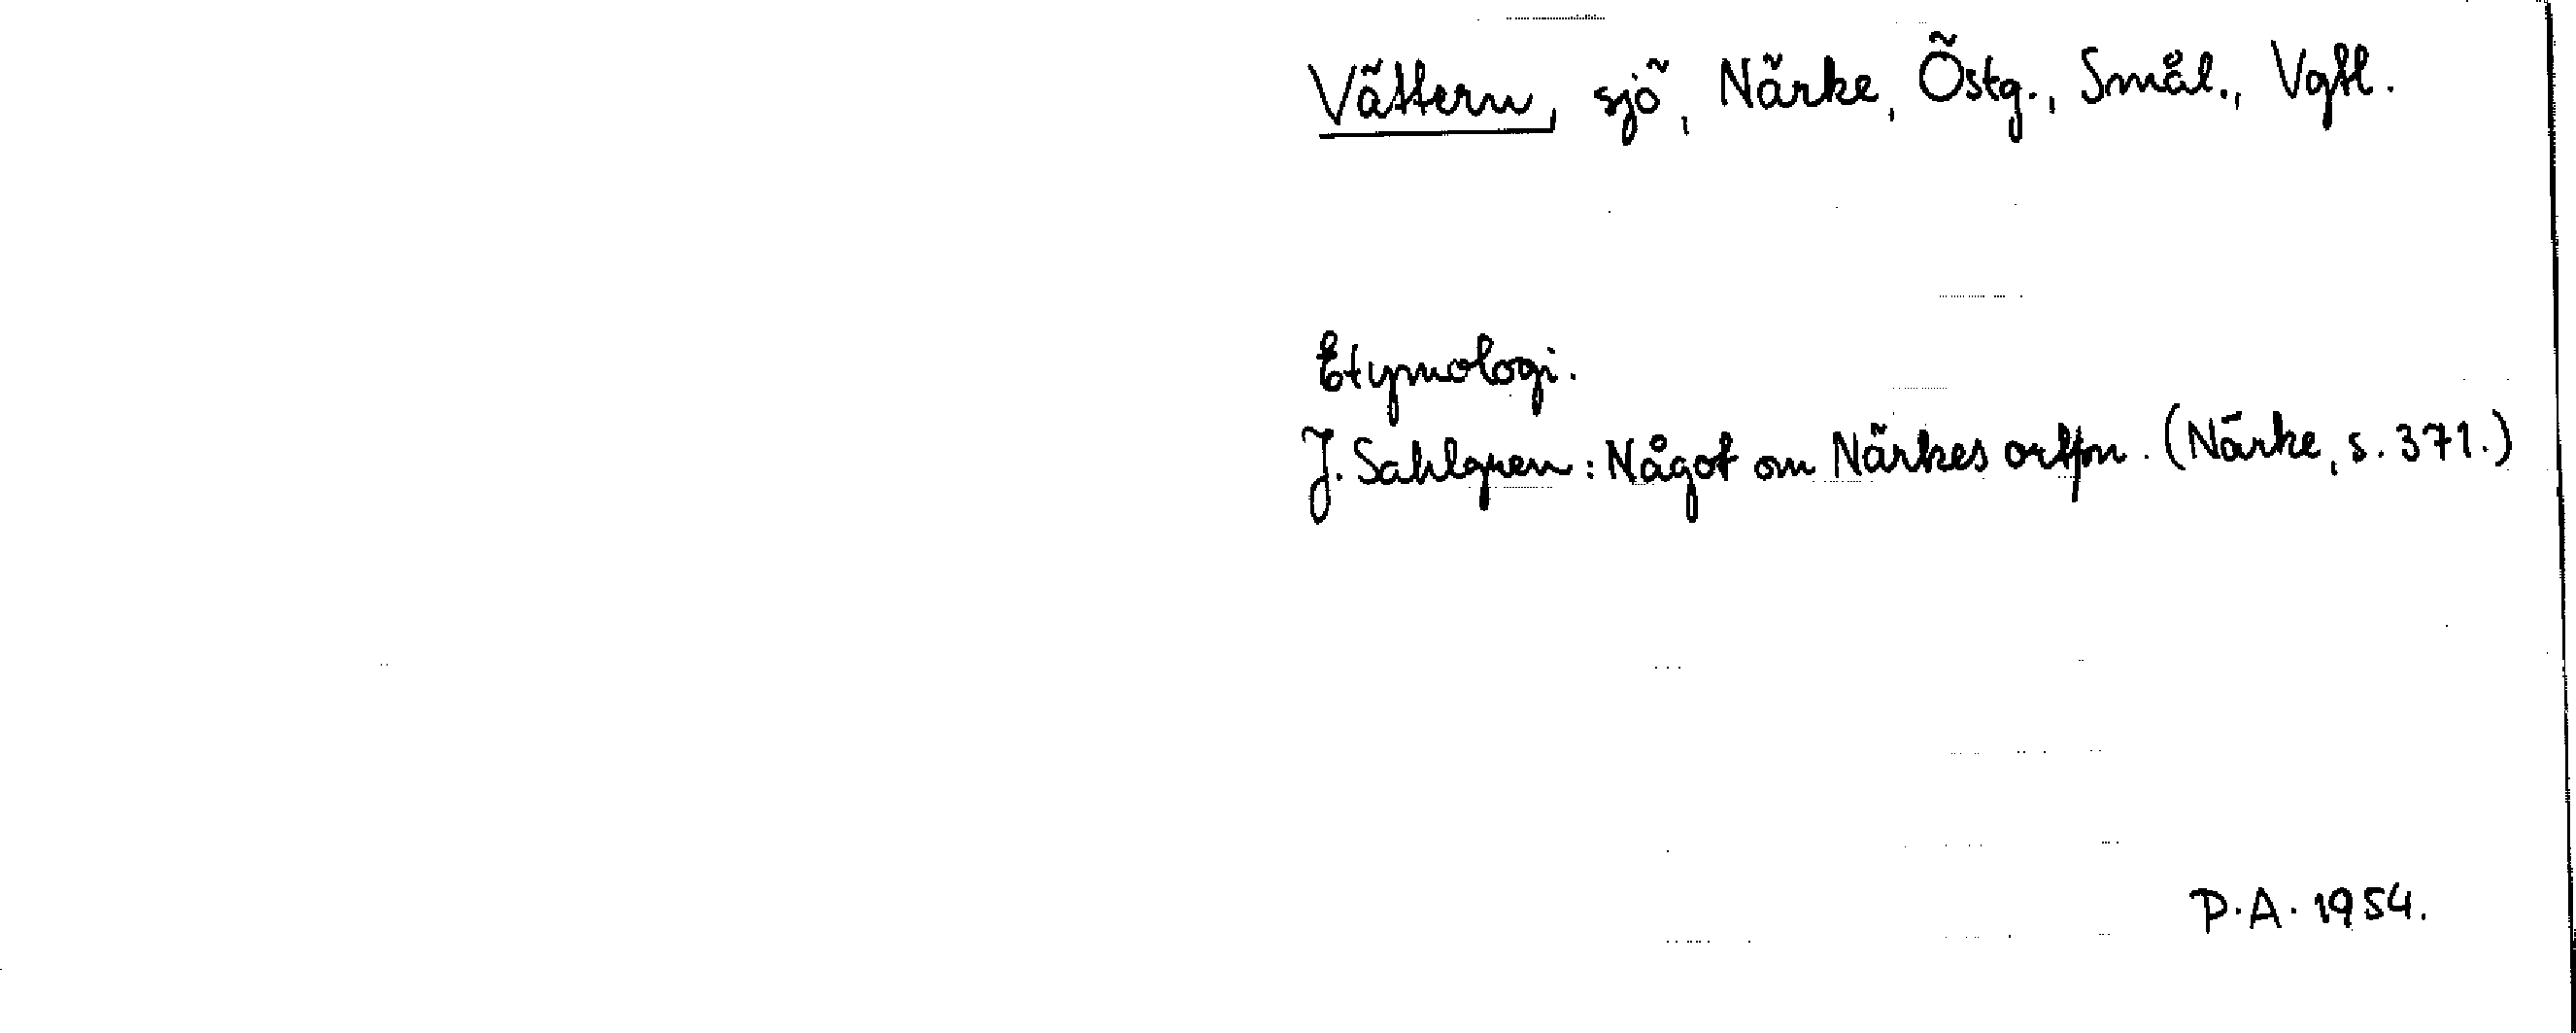 Vättern, sjö, Närke, Östg., Smål., Vgtl.
Etymologi.
J. Sahlgren: Något om Närkes ortfn. (Närke, s. 371.)
P.A. 1954.